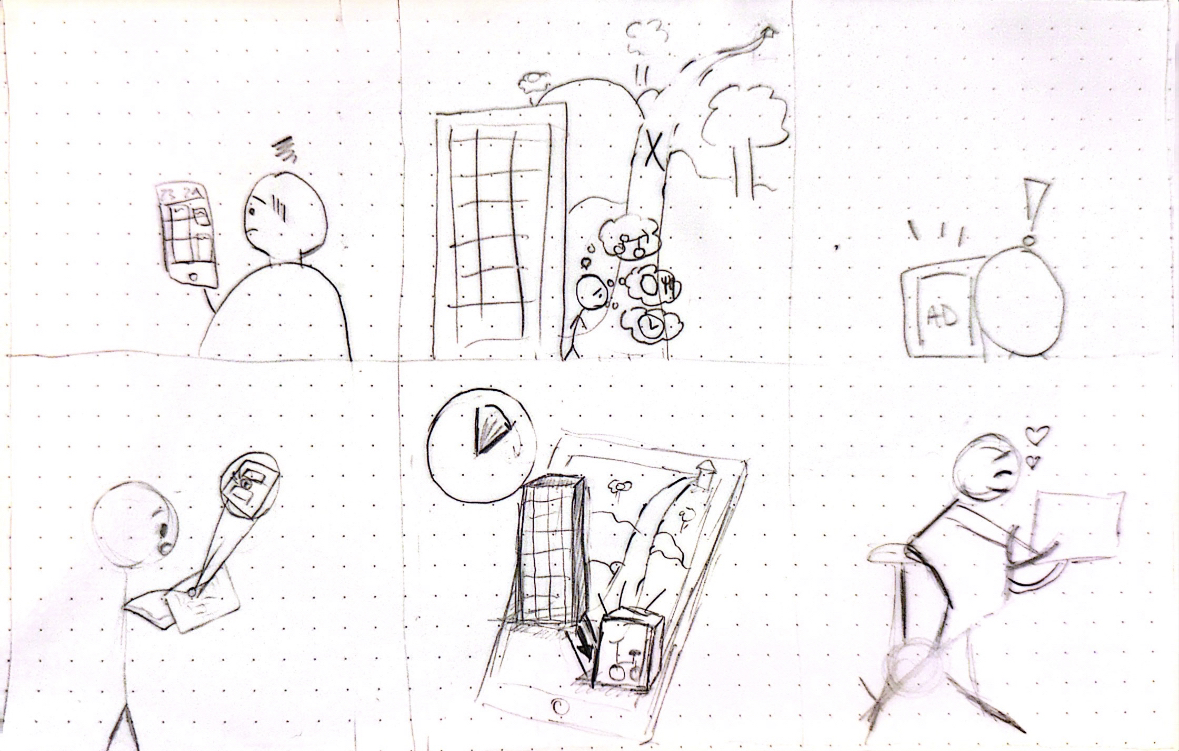 23 24
X
AD